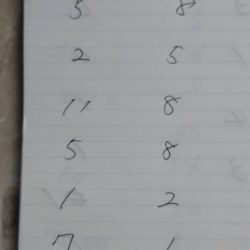 5 8
2 5
11 8
5 8
1 2
7 1